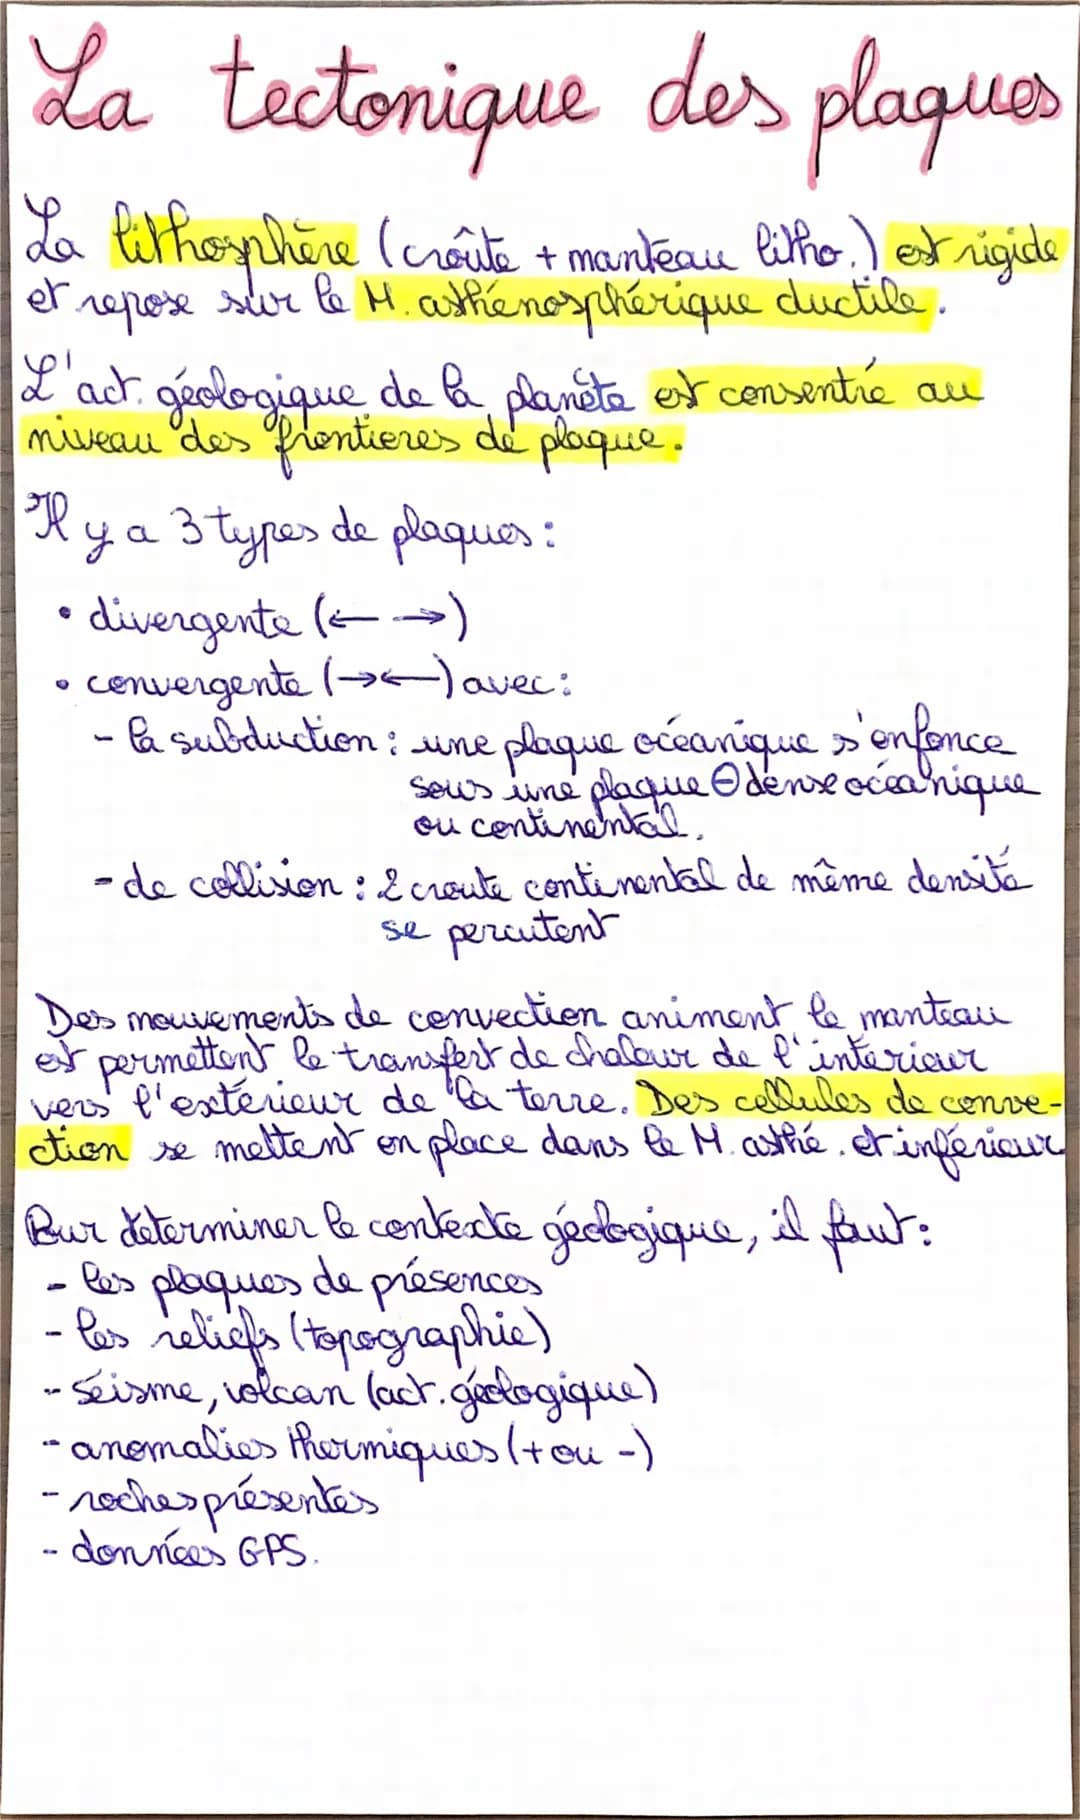 La tectonique des plaques
La lithosphère (croûte + manteau litho.) est rigide
et repose sur le M. asthénosphérique ductile.
L'act. géologique de la planète est consentré au
niveau des frontières de plaque.
Il y a 3 types de plaques :
• divergente (← →)
• convergente (→←) avec :
- la subduction : une plaque océanique s'enfonce
sous une plaque ⊖ dense océanique
ou continental.
- de collision : 2 croute continental de même densité
se percutent
Des mouvements de convection animent le manteau
est permettent le transfert de chaleur de l'intérieur
vers l'extérieur de la terre. Des cellules de conve-
ction se mettent en place dans le M. asthé. et inférieur
Pour déterminer le contexte géologique, il faut :
- les plaques de présences
- les reliefs (topographie)
- séisme, volcan (act. géologique)
- anomalies thermiques (+ ou -)
- roches présentes
- données GPS.